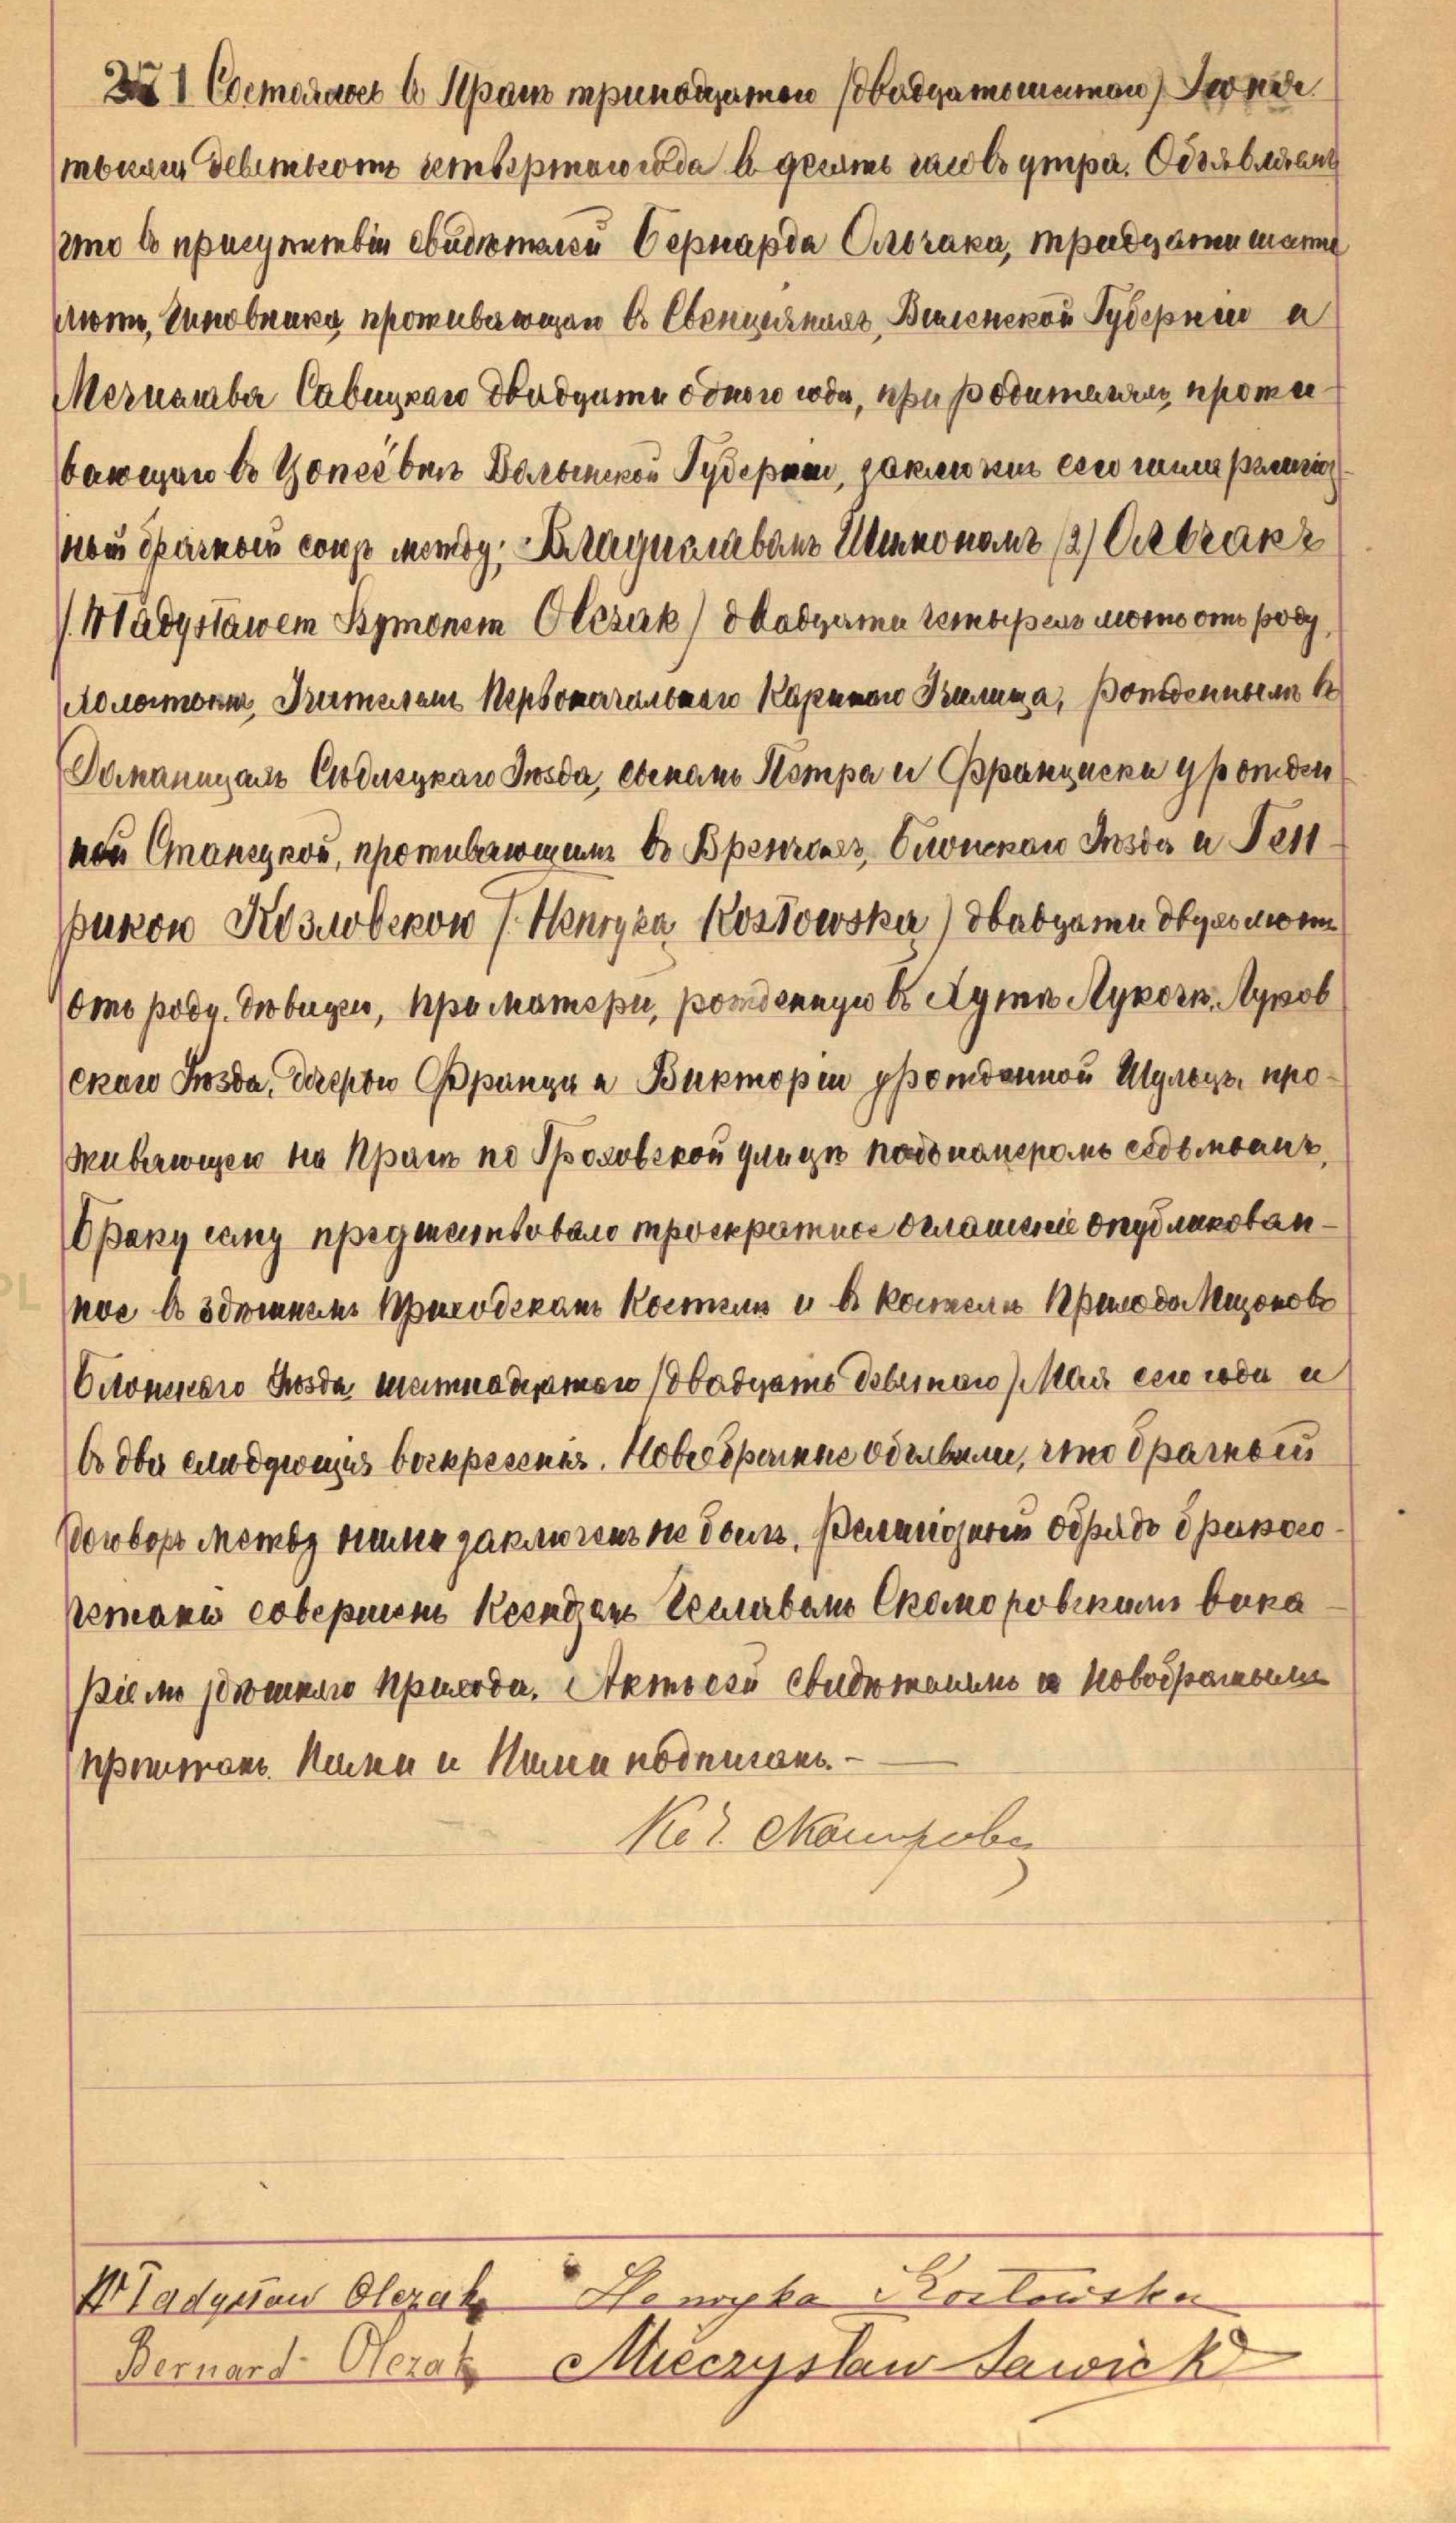 271 Состоялось въ Прагѣ тринадцатаго /двадцатошестаго/ Іюня
тысяча девятьсотъ четвертаго года въ десять часовъ утра. Объявляемъ
что въ присутствіи свидѣтелей Бернарда Ольчака, тридцати шести
лѣтъ, Чиновника, проживающаго въ Свенцянахъ, Виленской Губерніи и
Мечислава Савицкаго двадцати одного года, при родителяхъ, прожи-
вающаго въ Волынской Губерніи, заключенъ сего числа религіоз-
ный брачный союзъ между: Владиславомъ Шимономъ (2) Ольчакъ
/Władysławem Szymonem Olczak/ двадцати четырехъ лѣтъ отъ роду,
холостымъ, Учителемъ Первоначальнаго Училища, рожденнымъ въ
Доманицахъ Сѣдлецкаго Уѣзда, сыномъ Петра и Франциски урожден-
ной проживающимъ въ Блонскаго Уѣзда и Ген-
рикою Козловскою /Henryką Kozłowską/ двадцати двухъ лѣтъ
отъ роду, дѣвицею, при матери, рожденную въ Гутѣ Луков-
скаго Уѣзда, дочерью Франца и Викторіи урожденной Шульцъ, про-
живающею на Прагѣ по Гроховской улицѣ подъ номеромъ седьмымъ,
Браку сему предшествовало троекратное оглашеніе опубликован-
ное въ здѣшнемъ Приходскомъ Костелѣ и въ костелѣ Прихода Мщоновъ
Блонскаго Уѣзда шестнадцатаго /двадцать девятаго/ Мая сего года и
въ два слѣдующія воскресенія. Новобрачные объявили, что брачный
договоръ между ними заключенъ не былъ. Религіозный обрядъ бракосо-
четанія совершенъ Ксендзомъ Чеславомъ Скоморовскимъ вика-
ріемъ здѣшняго прихода. Актъ сей свидѣтелямъ и новобрачнымъ
прочитанъ, Нами и Ними подписанъ. —
Władysław Olczak Henryka Kozłowska
Bernard Olczak Mieczysław Sawicki